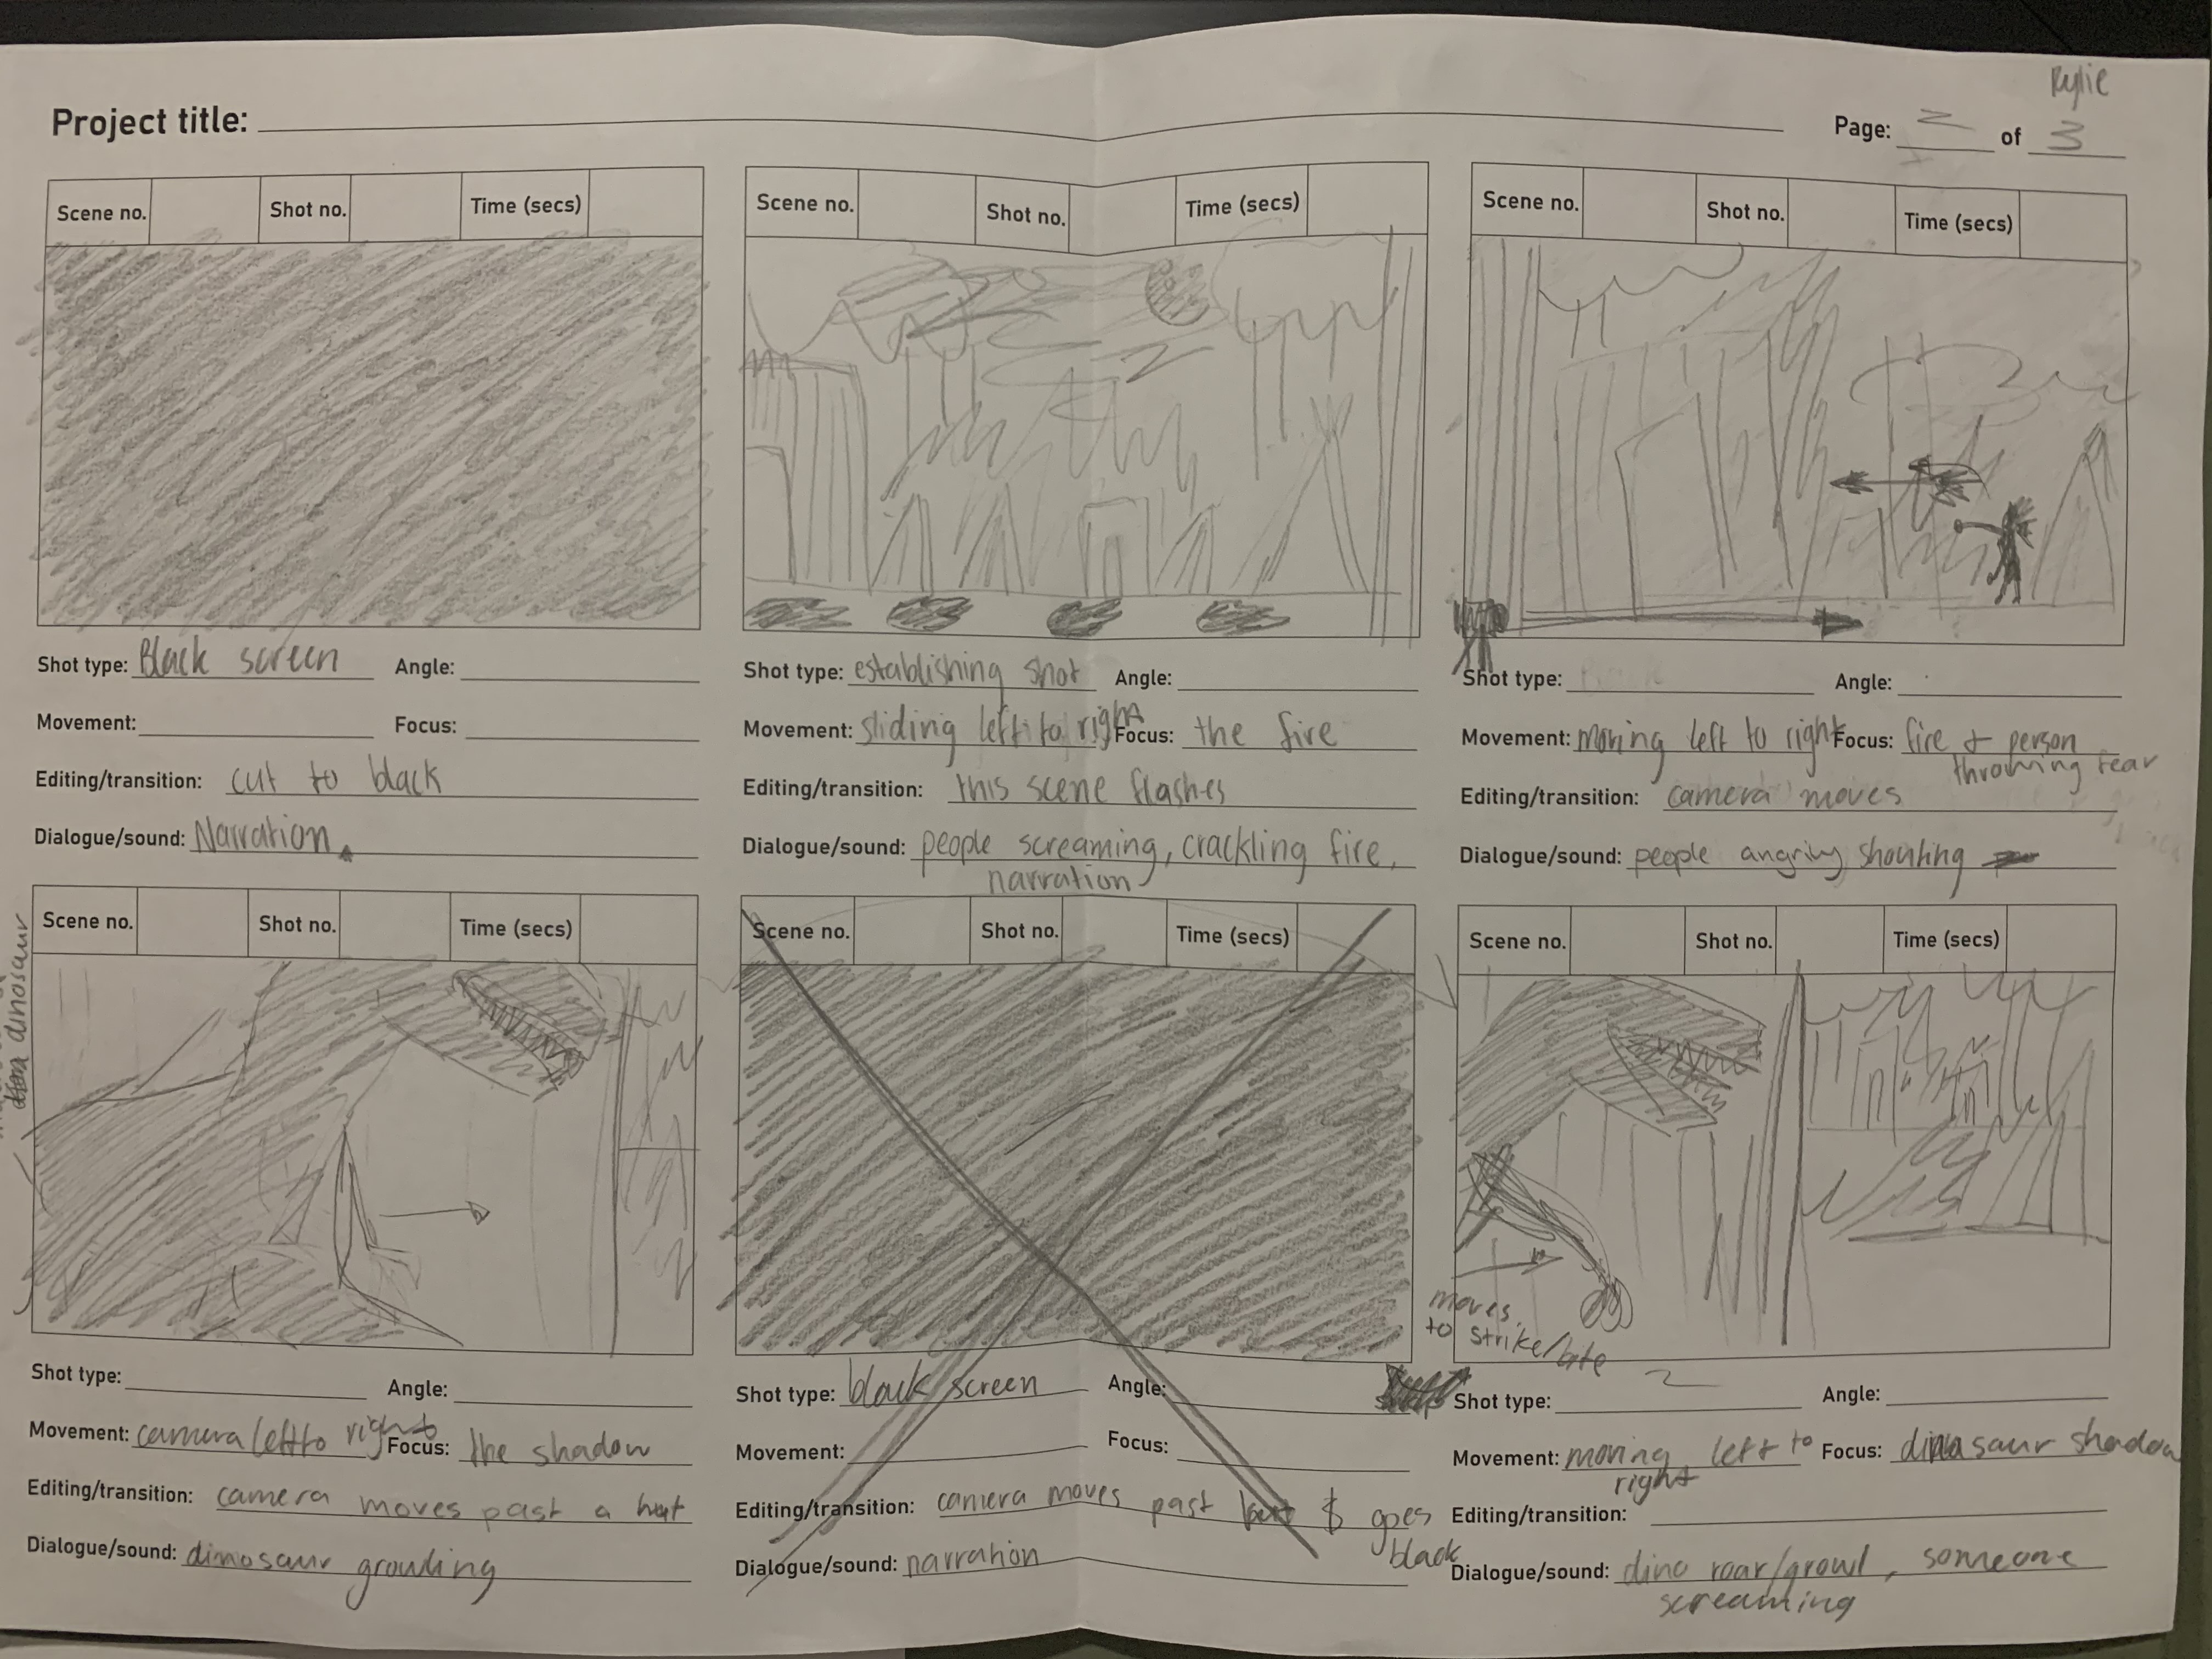 Rylie
Project title:
Page: 2 of 3
Scene no. Shot no. Time (secs)
Shot type: Black screen Angle:
Movement: Focus:
Editing/transition: cut to black
Dialogue/sound: Narration
Scene no. Shot no. Time (secs)
Shot type: establishing shot Angle:
Movement: sliding left to right Focus: the fire
Editing/transition: this scene flashes
Dialogue/sound: people screaming, crackling fire,
narration
Scene no. Shot no. Time (secs)
Shot type: Angle:
Movement: moving left to right Focus: fire & person
throwing
Editing/transition: camera moves
Dialogue/sound: people angrily shouting
dinosaur
Scene no. Shot no. Time (secs)
Shot type: Angle:
Movement: camera left to right Focus: the shadow
Editing/transition: camera moves past a hut
Dialogue/sound: dinosaur growling
Scene no. Shot no. Time (secs)
Shot type: black screen Angle:
Movement: Focus:
Editing/transition: camera moves past hut & goes
black
Dialogue/sound: narration
Scene no. Shot no. Time (secs)
moves
to strike/bite
Shot type: Angle:
Movement: moving left to Focus: dinosaur shadow
right
Editing/transition:
Dialogue/sound: dino roar/growl, someone
screaming